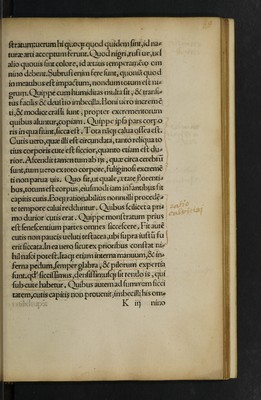 stratum: uerum hi quoque quod quidem sint, id natura
nino debent. Subrufi enim fere sunt, quoniā quod
in meatibus est impactum, nondum totum est nigrum.
Quippe cum humiditas multa sit, &
facilis & deustio imbecilla. Boni uero incrementi,
& modice crassi sunt, propter excrementorum
quibus aluntur, copiam. Quippe ipsa pars corporis
in qua sunt, sicca est. Tota nāque calua ossea est.
Cutis uero, quæ illi est circundata, tanto reliqua totius
corporis cute est siccior, quanto etiam est durior.
Ascendit tamen tum ab ijs, quæ circa cerebrū
sunt, tum uero ex toto corpore, fuliginosi excrementi
non parua uis. Quo fit, ut quale, ætate florentibus,
totum est corpus, eiusmodi iam infantibus sit
capitis cutis. Eoque rationabilius nonnulli procedente
tempore calui redduntur. Quibus scilicet a primo
durior cutis erat. Quippe monstratum prius
est senescentium partes omnes siccescere. Fit autē
cutis non paucis ueluti testacea, ubi supra iustū fuerit
siccata. In ea uero sicut ex prioribus constat nihil
nasci potest. Itaque etiam interna manuum, & inferna
pedum, semper glabra, & pilorum expertia
sunt, quod siccissimus, densissimusque sit tendo is, qui
sub cute habetur. Quibus autem ad summam siccitatem,
cutis capitis non prouenit, imbecilli his om-
K iij nino